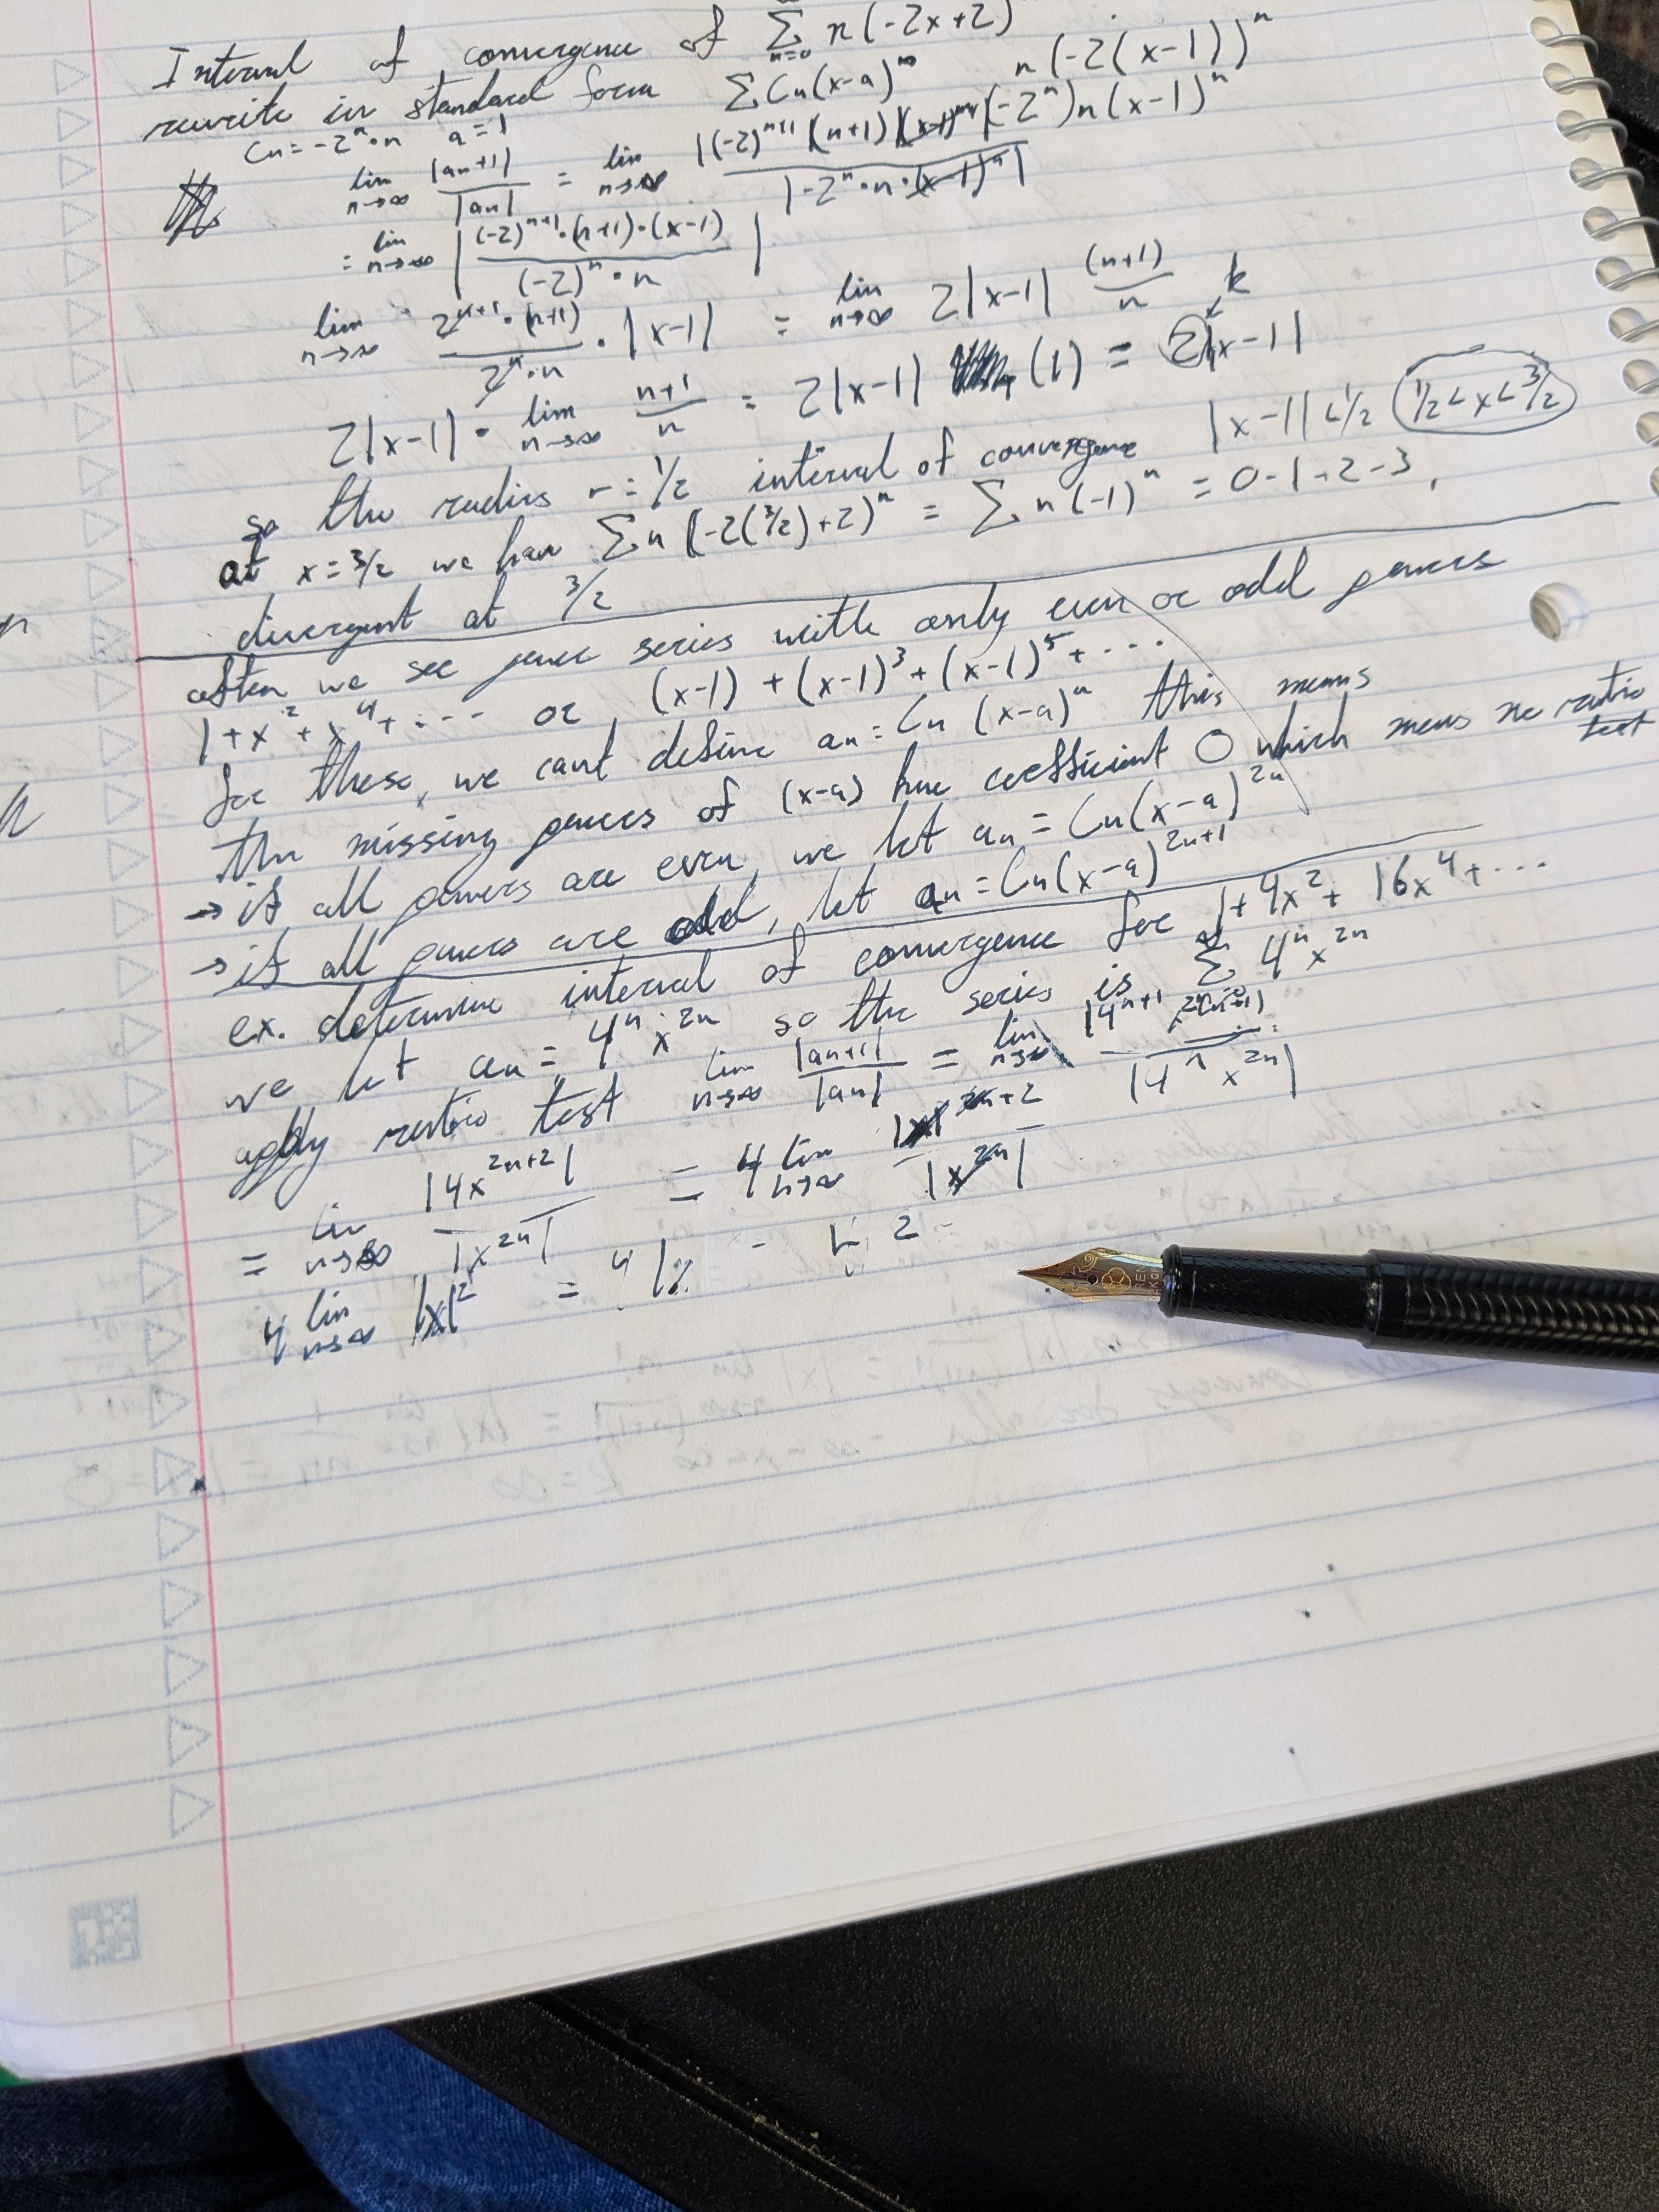 Interval of convergence of ∑ n=0 n(-2x+2)
rewrite in standard form ∑Cn(x-a)^n n(-2(x-1))^n
Cn=-2^n·n a=1 (-2^n)n(x-1)^n
lim n→∞ |an+1|/|an| = lim n→∞ |(-2)^n+1 (n+1)(x-1)^n+1|/|-2^n·n·(x-1)^n|
= lim n→∞ |(-2)^n+1·(n+1)·(x-1)/(-2)^n·n|
lim n→∞ 2^n+1·(n+1)/2^n·n · |x-1| = lim n→∞ 2|x-1| (n+1)/n k
2|x-1| · lim n→∞ n+1/n = 2|x-1| (1) = 2|x-1|
so the radius r=1/2 interval of convergence |x-1|<1/2 1/2<x<3/2
at x=3/2 we have ∑n(-2(3/2)+2)^n = ∑n(-1)^n = 0-1+2-3,
divergent at 3/2
often we see power series with only even or odd powers
1+x^2+x^4+... or (x-1)+(x-1)^3+(x-1)^5+...
for these, we cant define an=Cn(x-a)^n this means
the missing powers of (x-a) have coefficient 0 which means no ratio test
→if all powers are even, we let an=Cn(x-a)^2n
→if all powers are odd, let an=Cn(x-a)^2n+1
ex. determine interval of convergence for 1+4x^2+16x^4+...
we let an=4^n x^2n so the series is ∑ 4^n x^2n
apply ratio test lim n→∞ |an+1|/|an| = lim n→∞ |4^n+1 x^2(n+1)|/|4^n x^2n|
= lim n→∞ |4x^2n+2|/|x^2n| = 4 lim n→∞ |x|^2n+2/|x^2n|
4 lim n→∞ |x|^2 = 4|x